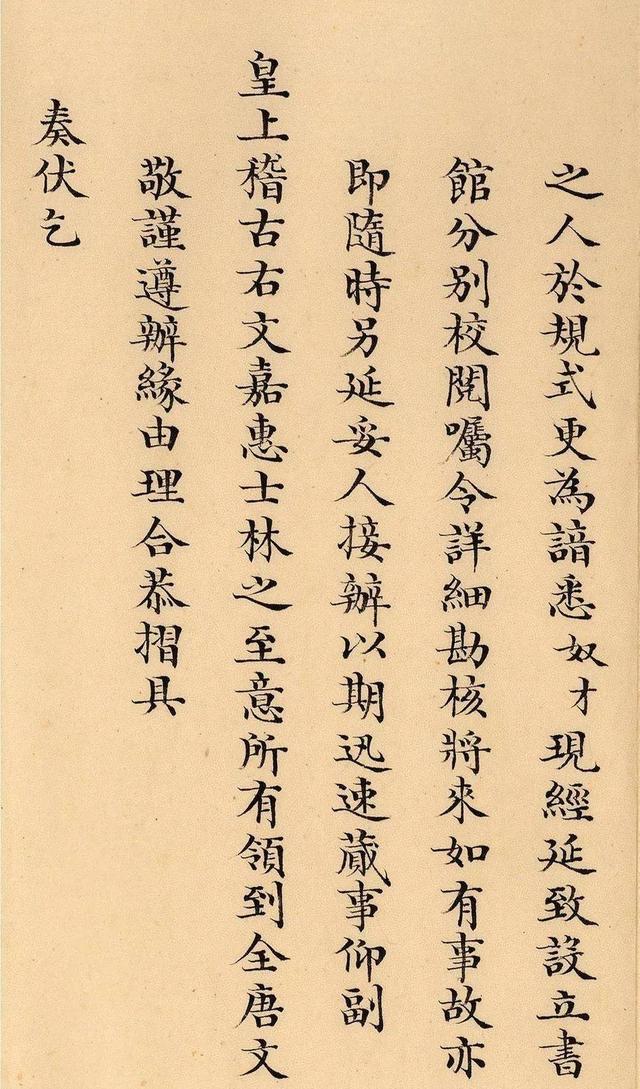 之人於規式更為諳悉奴才現經延致設立書
館分別校閱囑令詳細勘核將來如有事故亦
即隨時另延妥人接辦以期迅速蕆事仰副
皇上稽古右文嘉惠士林之至意所有領到全唐文
敬謹遵辦緣由理合恭摺具
奏伏乞